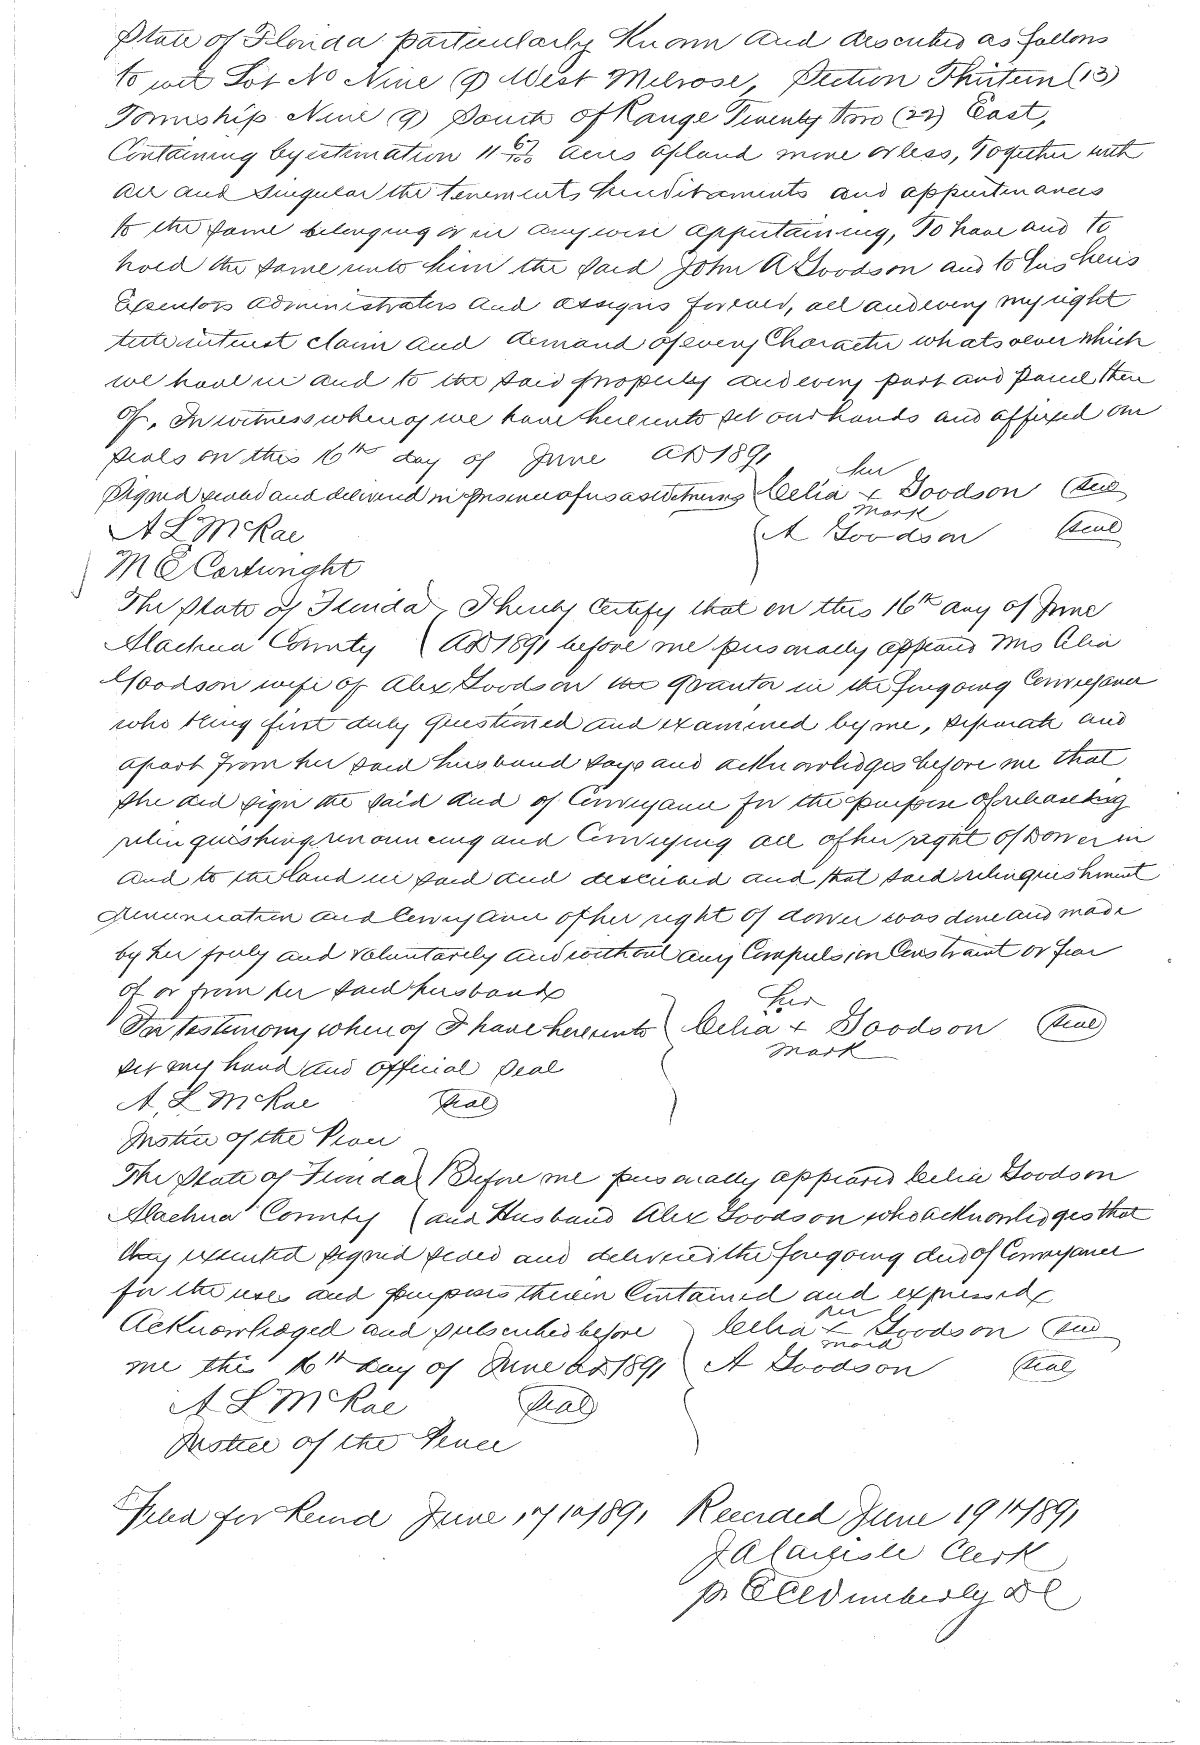 State of Florida particularly Known and described as follows
to wit Lot No Nine (9) West Melrose, Section Thirteen (13)
Township Nine (9) South of Range Twenty two (22) East,
Containing by estimation 11 67/100 acres of land more or less, Together with
all and singular the tenements hereditaments and appurtenances
to the same belonging or in anywise appertaining, To have and to
hold the same unto him the said John A Goodson and to his heirs
Executors administrators and assigns forever, all and every my right
title interest claim and demand of every Character whatsoever which
we have in and to the said property and every part and parcel there
of. In witness whereof we have hereunto set our hands and affixed our
seals on this 16th day of June AD 1891
Signed sealed and delivered in presence of us as witnesses } Celia her x mark Goodson (Seal)
A L McRae { A Goodson (Seal)
M E Cartwright
The State of Florida } I hereby Certify that on this 16th day of June
Alachua County { AD 1891 before me personally appeared Mrs Celia
Goodson wife of Alex Goodson the Grantor in the foregoing Conveyance
who being first duly questioned and examined by me, separate and
apart from her said husband says and acknowledges before me that
she did sign the said deed of Conveyance for the purpose of releasing
relinquishing renouncing and Conveying all of her right of Dower in
and to the land in said deed described and that said relinquishment
renunciation and Conveyance of her right of dower was done and made
by her freely and voluntarily and without any Compulsion Constraint or fear
of or from her said husband
In testimony whereof I have hereunto } Celia her x mark Goodson (Seal)
set my hand and official seal
A. L McRae (Seal)
Justice of the Peace
The State of Florida } Before me personally appeared Celia Goodson
Alachua County { and Husband Alex Goodson who acknowledges that
they executed signed sealed and delivered the foregoing deed of Conveyance
for the uses and purposes therein Contained and expressed
Acknowledged and subscribed before } Celia her x mark Goodson (Seal)
me this 16th day of June AD 1891 { A Goodson (Seal)
A L McRae (Seal)
Justice of the Peace
Filed for Record June 17th 1891 Recorded June 19th 1891
J A Carlisle Clerk
pr DC